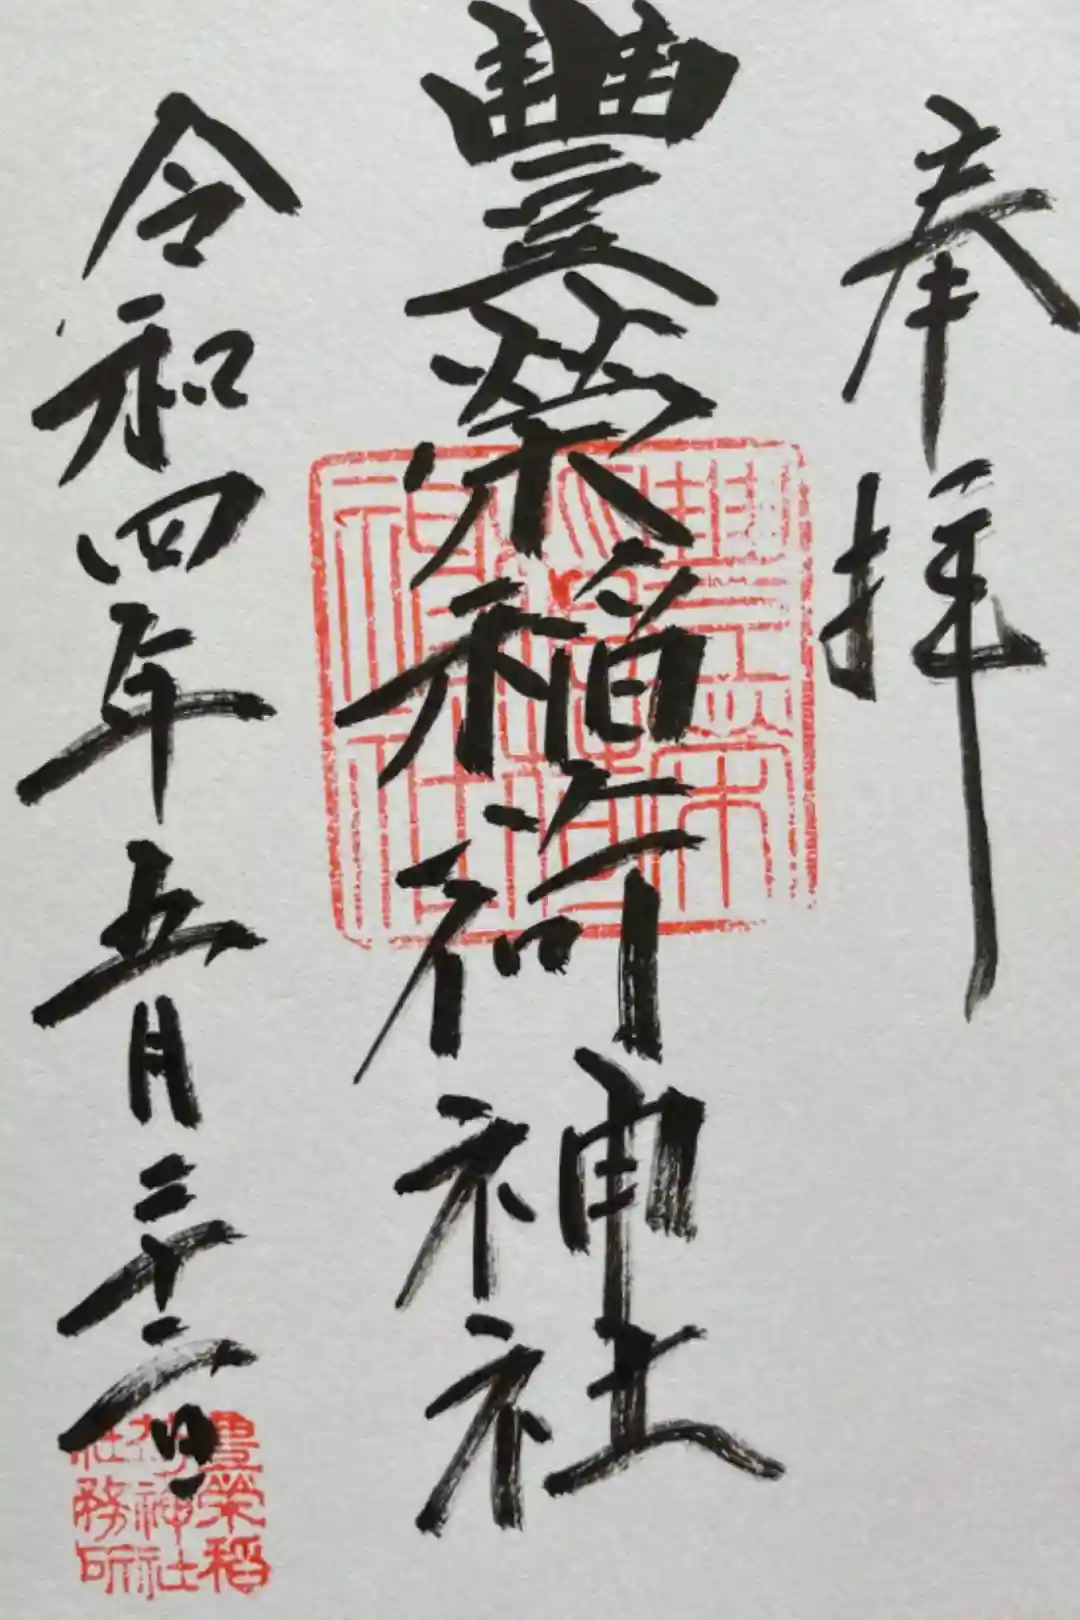 奉拝
豐榮稲荷神社
令和四年五月二十二日
豊榮稲
荷神社
社務所